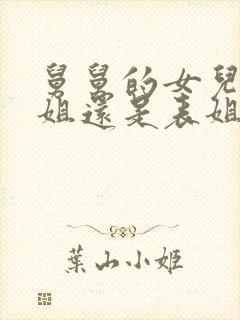 舅舅的女兒
姐還是表姐
葉山小姬